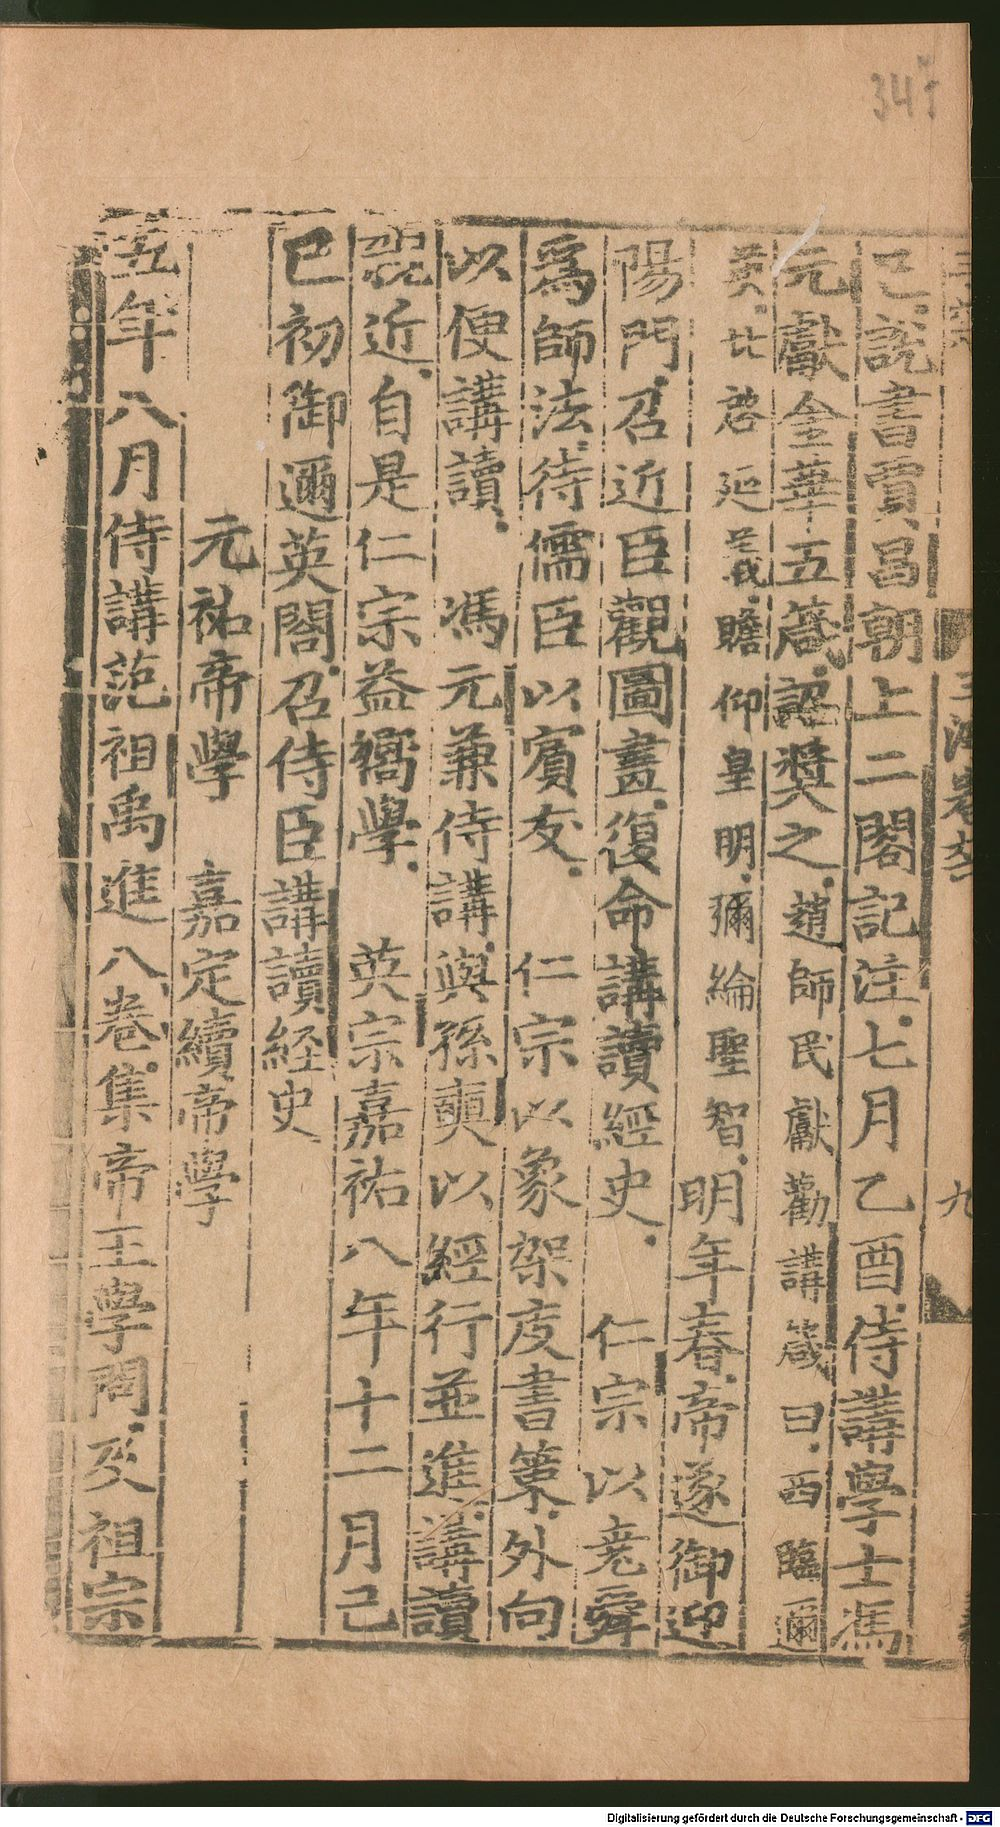 己說書賈昌朝上二閣記注七月乙酉侍講學士馮
元獻金華五箴詔奬之趙師民獻勸講箴曰西臨邇
英北啓延義瞻仰皇明彌綸聖智明年春帝遂御迎
陽門召近臣觀圖畫復命講讀經史 仁宗以堯舜
爲師法待儒臣以賓友 仁宗以象架庋書策外向
以便講讀 馮元兼侍講與孫奭以經行並進講讀
親近自是仁宗益嚮學 英宗嘉祐八年十二月己
巳初御邇英閣召侍臣講讀経史
元祐帝學 嘉定續帝學
五年八月侍講范祖禹進八卷集帝王學問及祖宗
九
345
Digitalisierung gefördert durch die Deutsche Forschungsgemeinschaft - DFG